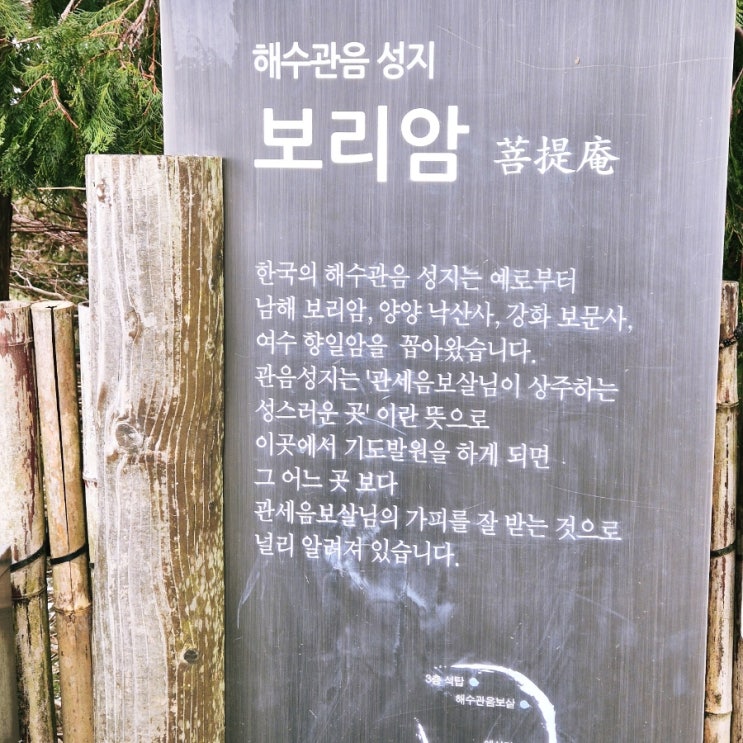 해수관음 성지
보리암 菩提庵
한국의 해수관음 성지는 예로부터
남해 보리암, 양양 낙산사, 강화 보문사,
여수 향일암을 꼽아왔습니다.
관음성지는 '관세음보살님이 상주하는
성스러운 곳' 이란 뜻으로
이곳에서 기도발원을 하게 되면
그 어느 곳 보다
관세음보살님의 가피를 잘 받는 것으로
널리 알려져 있습니다.
3층 석탑
해수관음보살